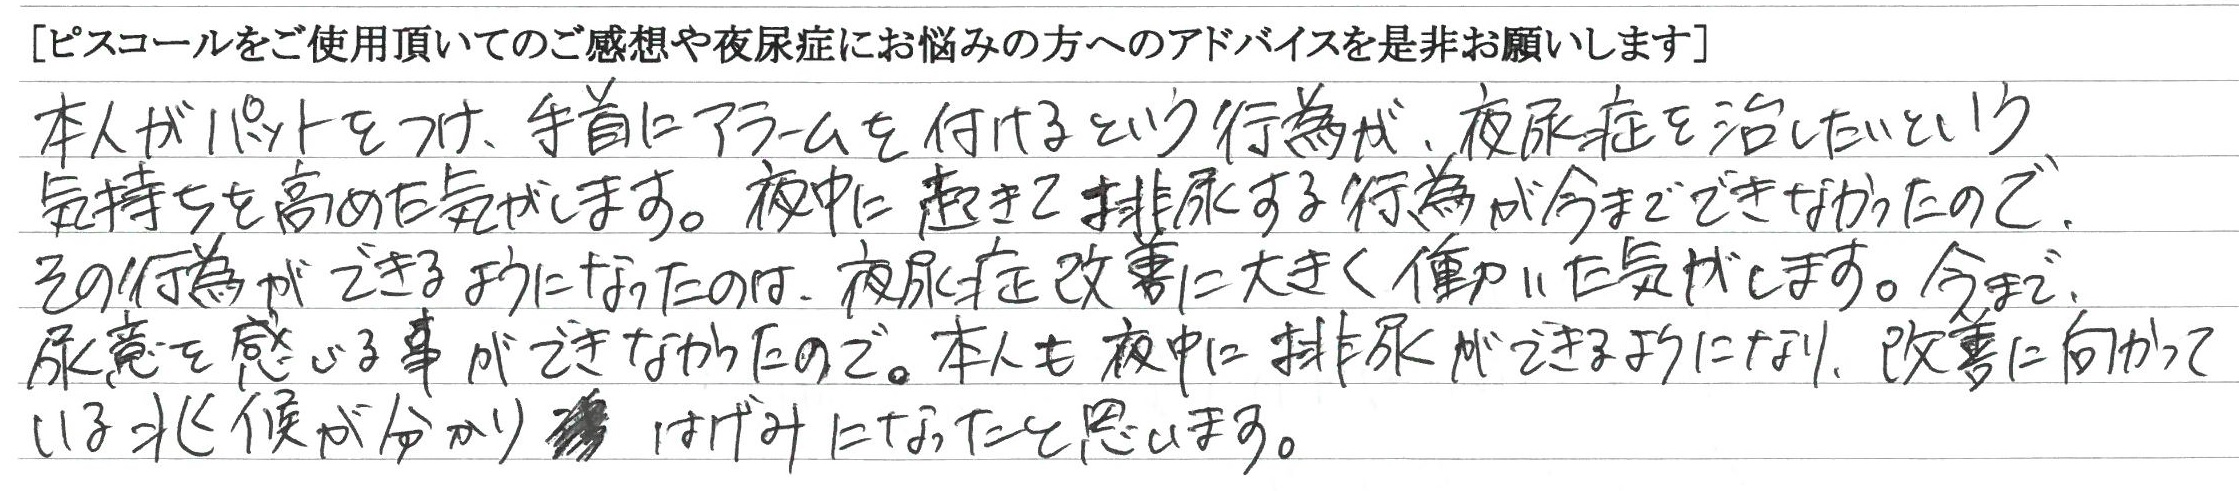 [ピスコールをご使用頂いてのご感想や夜尿症にお悩みの方へのアドバイスを是非お願いします]
本人がパットをつけ、手首にアラームを付けるという行為が、夜尿症を治したいという
気持ちを高めた気がします。夜中に起きて排尿する行為が今までできなかったので、
その行為ができるようになったのは、夜尿症改善に大きく働いた気がします。今まで、
尿意を感じる事ができなかったので。本人も夜中に排尿ができるようになり、改善に向かって
いる兆候が分かり はげみになったと思います。